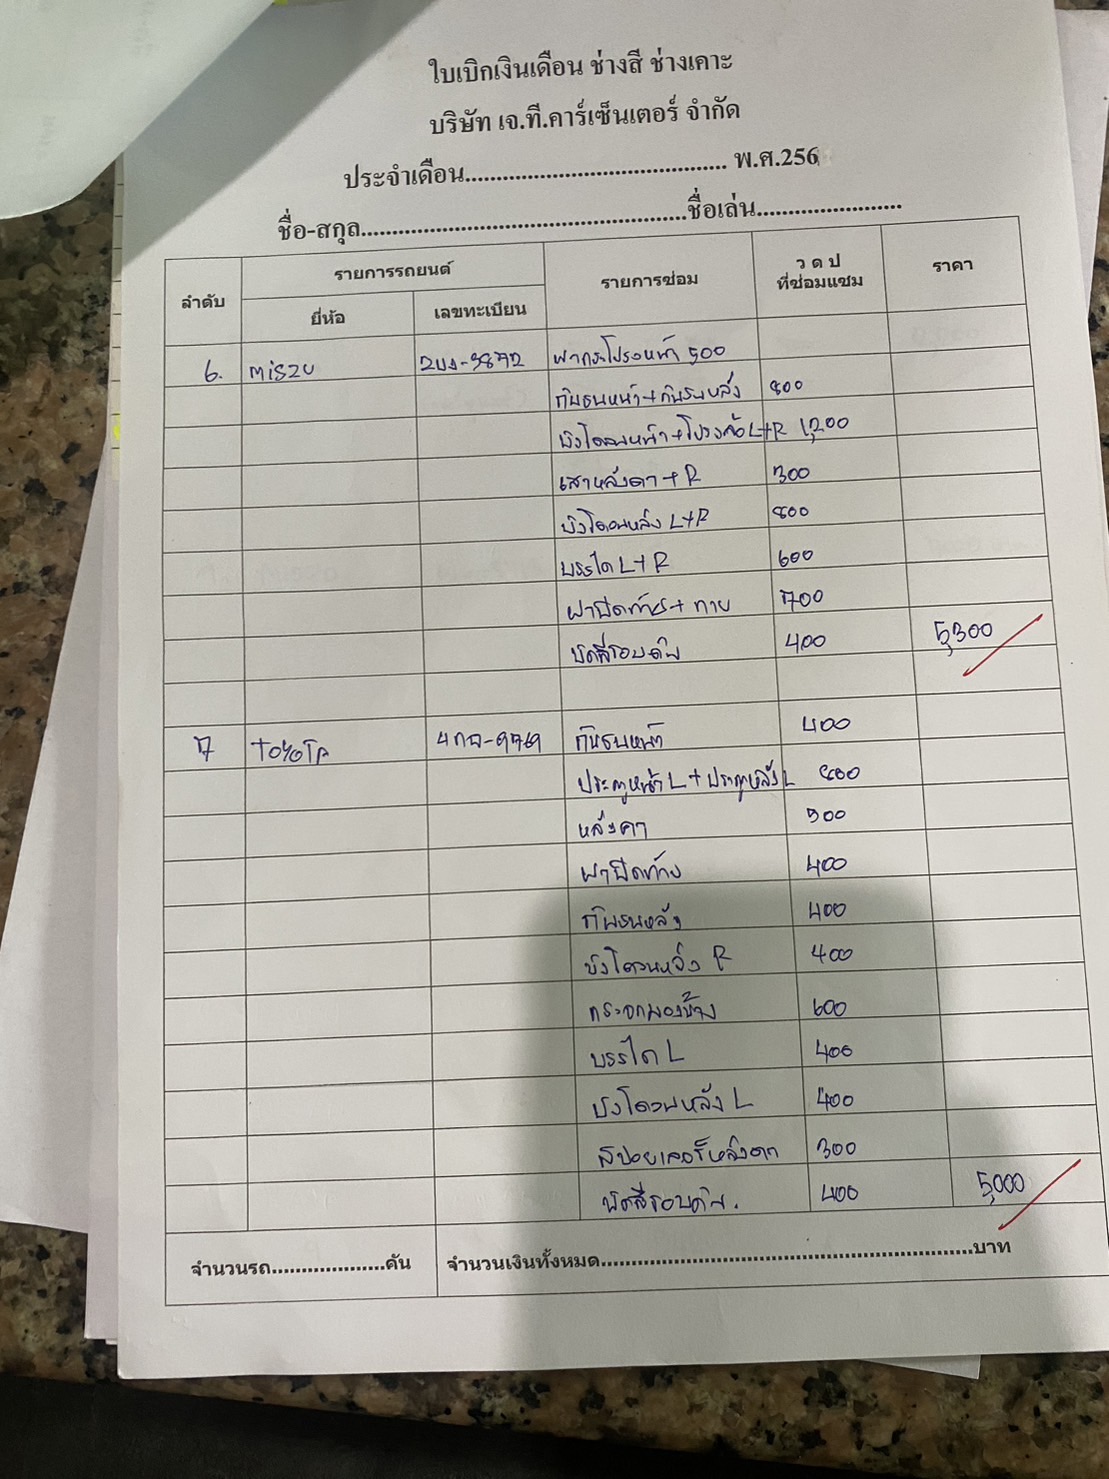 ใบเบิกเงินเดือน ช่างสี ช่างเคาะ
บริษัท เจ.ที.คาร์เซ็นเตอร์ จำกัด
ประจำเดือน.......................................... พ.ศ.256
ชื่อ-สกุล....................................................ชื่อเล่น.......................
ลำดับ รายการรถยนต์ รายการซ่อม ว ด ป ที่ซ่อมแซม ราคา
ยี่ห้อ เลขทะเบียน
6. ฝากระโปรงหน้า 500
กันชนหน้า+กันชนหลัง 800
บังโคลนหน้า+โปรงล้อ L+R 1,200
เสาหลังคา + R 300
บังโคลนหลัง L+R 800
บรรได L+R 600
ฝาปิดท้าย + 700
ขัดสีรอบคัน 400 5,300
7 TOYOTA กันชนหน้า 400
ประตูหน้า L + ประตูหลัง L 800
หลังคา 500
ฝาปิดท้าย 400
กันชนหลัง 400
บังโคลนหลัง R 400
กระจกมองข้าง 600
บรรได L 400
บังโคลนหลัง L 400
สปอยเลอร์หลังคา 300
ขัดสีรอบคัน. 400 5,000
จำนวนรถ...................คัน จำนวนเงินทั้งหมด..............................................................บาท